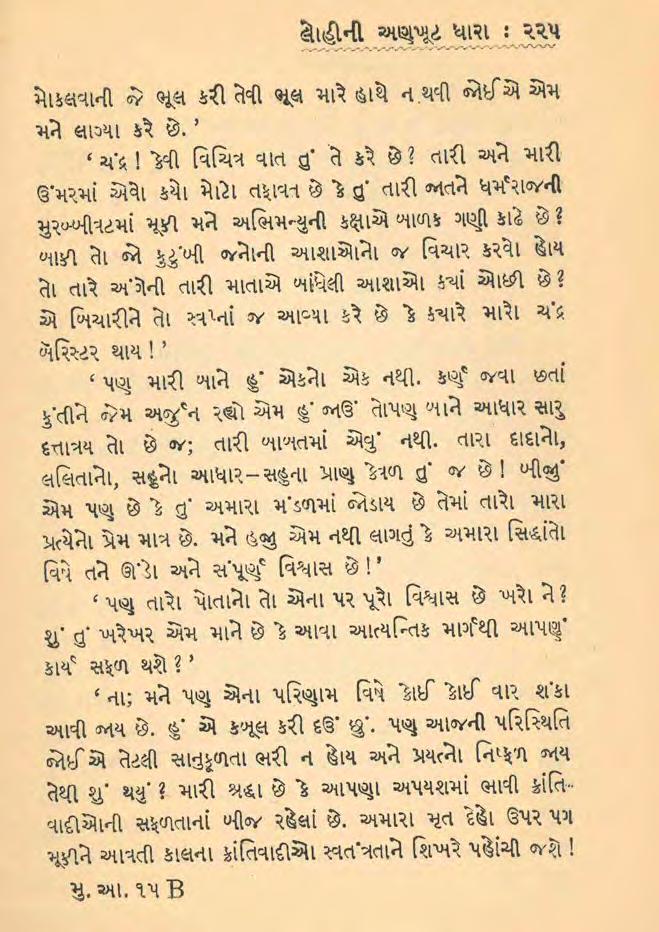 લોહીની અણખૂટ ધારા : ૨૨૫
મોકલવાની જે ભૂલ કરી તેવી ભૂલ મારે હાથે ન થવી જોઈએ એમ
મને લાગ્યા કરે છે.’
‘ ચંદ્ર ! કેવી વિચિત્ર વાત તું તે કરે છે? તારી અને મારી
ઉંમરમાં એવો કયો મોટો તફાવત છે કે તું તારી જાતને ધર્મરાજની
મુરબ્બીવટમાં મૂકી મને અભિમન્યુની કક્ષાએ બાળક ગણી કાઢે છે?
બાકી તો જો કુટુંબી જનોની આશાઓનો જ વિચાર કરવો હોય
તો તારે અંગેની તારી માતાએ બાંધેલી આશાઓ ક્યાં ઓછી છે?
એ બિચારીને તો સ્વપ્નાં જ આવ્યા કરે છે કે ક્યારે મારો ચંદ્ર
બૅરિસ્ટર થાય !’
‘ પણ મારી બાને હું એકનો એક નથી. કર્ણ જવા છતાં
કુંતીને જેમ અર્જુન રહ્યો એમ હું જાઉં તોપણ બાને આધાર સારુ
દત્તાત્રય તો છે જ; તારી બાબતમાં એવું નથી. તારા દાદાનો,
લલિતાનો, સહુનો આધાર–સહુના પ્રાણ કેવળ તું જ છે! બીજું
એમ પણ છે કે તું અમારા મંડળમાં જોડાય છે તેમાં તારો મારા
પ્રત્યેનો પ્રેમ માત્ર છે. મને હજી એમ નથી લાગતું કે અમારા સિદ્ધાંતો
વિષે તને ઊંડો અને સંપૂર્ણ વિશ્વાસ છે!’
‘ પણ તારો પોતાનો તો એના પર પૂરો વિશ્વાસ છે ખરો ને?
શું તું ખરેખર એમ માને છે કે આવા આત્યન્તિક માર્ગથી આપણું
કાર્ય સફળ થશે?’
‘ ના; મને પણ એના પરિણામ વિષે કોઈ કોઈ વાર શંકા
આવી જાય છે. હું એ કબૂલ કરી દઉં છું. પણ આજની પરિસ્થિતિ
જોઈએ તેટલી સાનુકૂળતા ભરી ન હોય અને પ્રયત્નો નિષ્ફળ જાય
તેથી શું થયું? મારી શ્રદ્ધા છે કે આપણા અપયશમાં ભાવી ક્રાંતિ-
વાદીઓની સફળતાનાં બીજ રહેલાં છે. અમારા મૃત દેહો ઉપર પગ
મૂકીને આવતી કાલના ક્રાંતિવાદીઓ સ્વતંત્રતાને શિખરે પહોંચી જશે!
મુ. આ. ૧૫ B